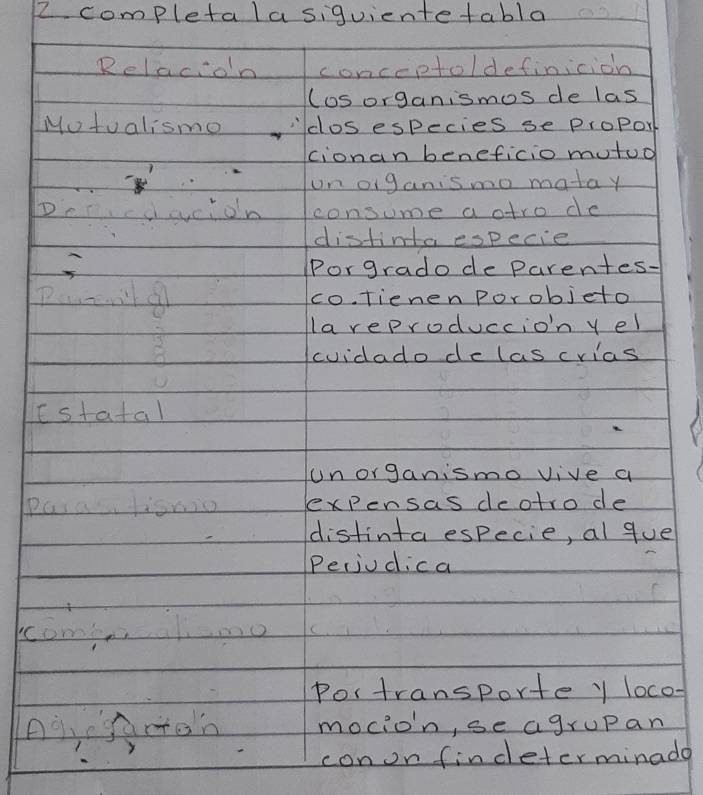 2. completa la siguiente tabla
Relación concepto/definición
Los organismos de las
Mutualismo dos especies se propor
cionan beneficio mutuo
un organismo mata y
Depredación consume a otro de
distinta especie
Por grado de parentes-
co. Tienen por objeto
la reproducción y el
cuidado de las crías
Estatal
un organismo vive a
Parasitismo expensas de otro de
distinta especie, al que
perjudica
Por transporte y loco-
Agregación moción, se agrupan
con un fin determinado